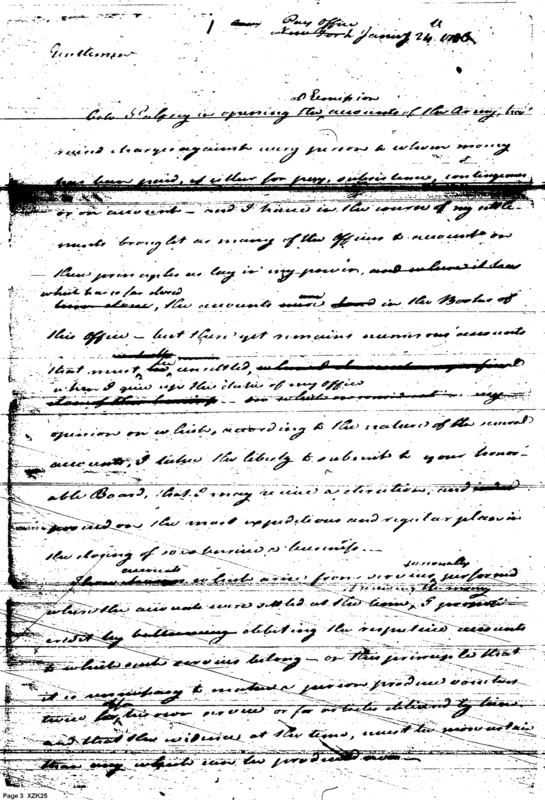 Pay Office
New York Jany 24th
Gentlemen
Emission
in opening the accounts of the Army, has
raised charges against every person to whom money
has been paid, either for pay, subsistence, contingencies
or on account — and I have in the course of my settle-
ments brought as many of the Officers to account on
these principles as lay in my power, and where it has
been done, the accounts are in the Books of
this Office — but there yet remains numerous accounts
that must be unsettled,
when I give up the duties of my office
my
opinion on which, according to the nature of the several
accounts, I take the liberty to submit to your honor-
able Board, that I may receive a direction, and
proceed on the most expeditious and regular plan in
the closing of so extensive a business —
accounts personally
which arise from services performed
when the accounts were settled at the time, I propose
credit by debiting the respective accounts
to which such services belong — on this principle that
it is unnecessary to make a person produce vouchers
twice for his own service or for articles delivered by him
and that the evidence at the time, must be more certain
than any which can be produced now —
Page 3 XZK25